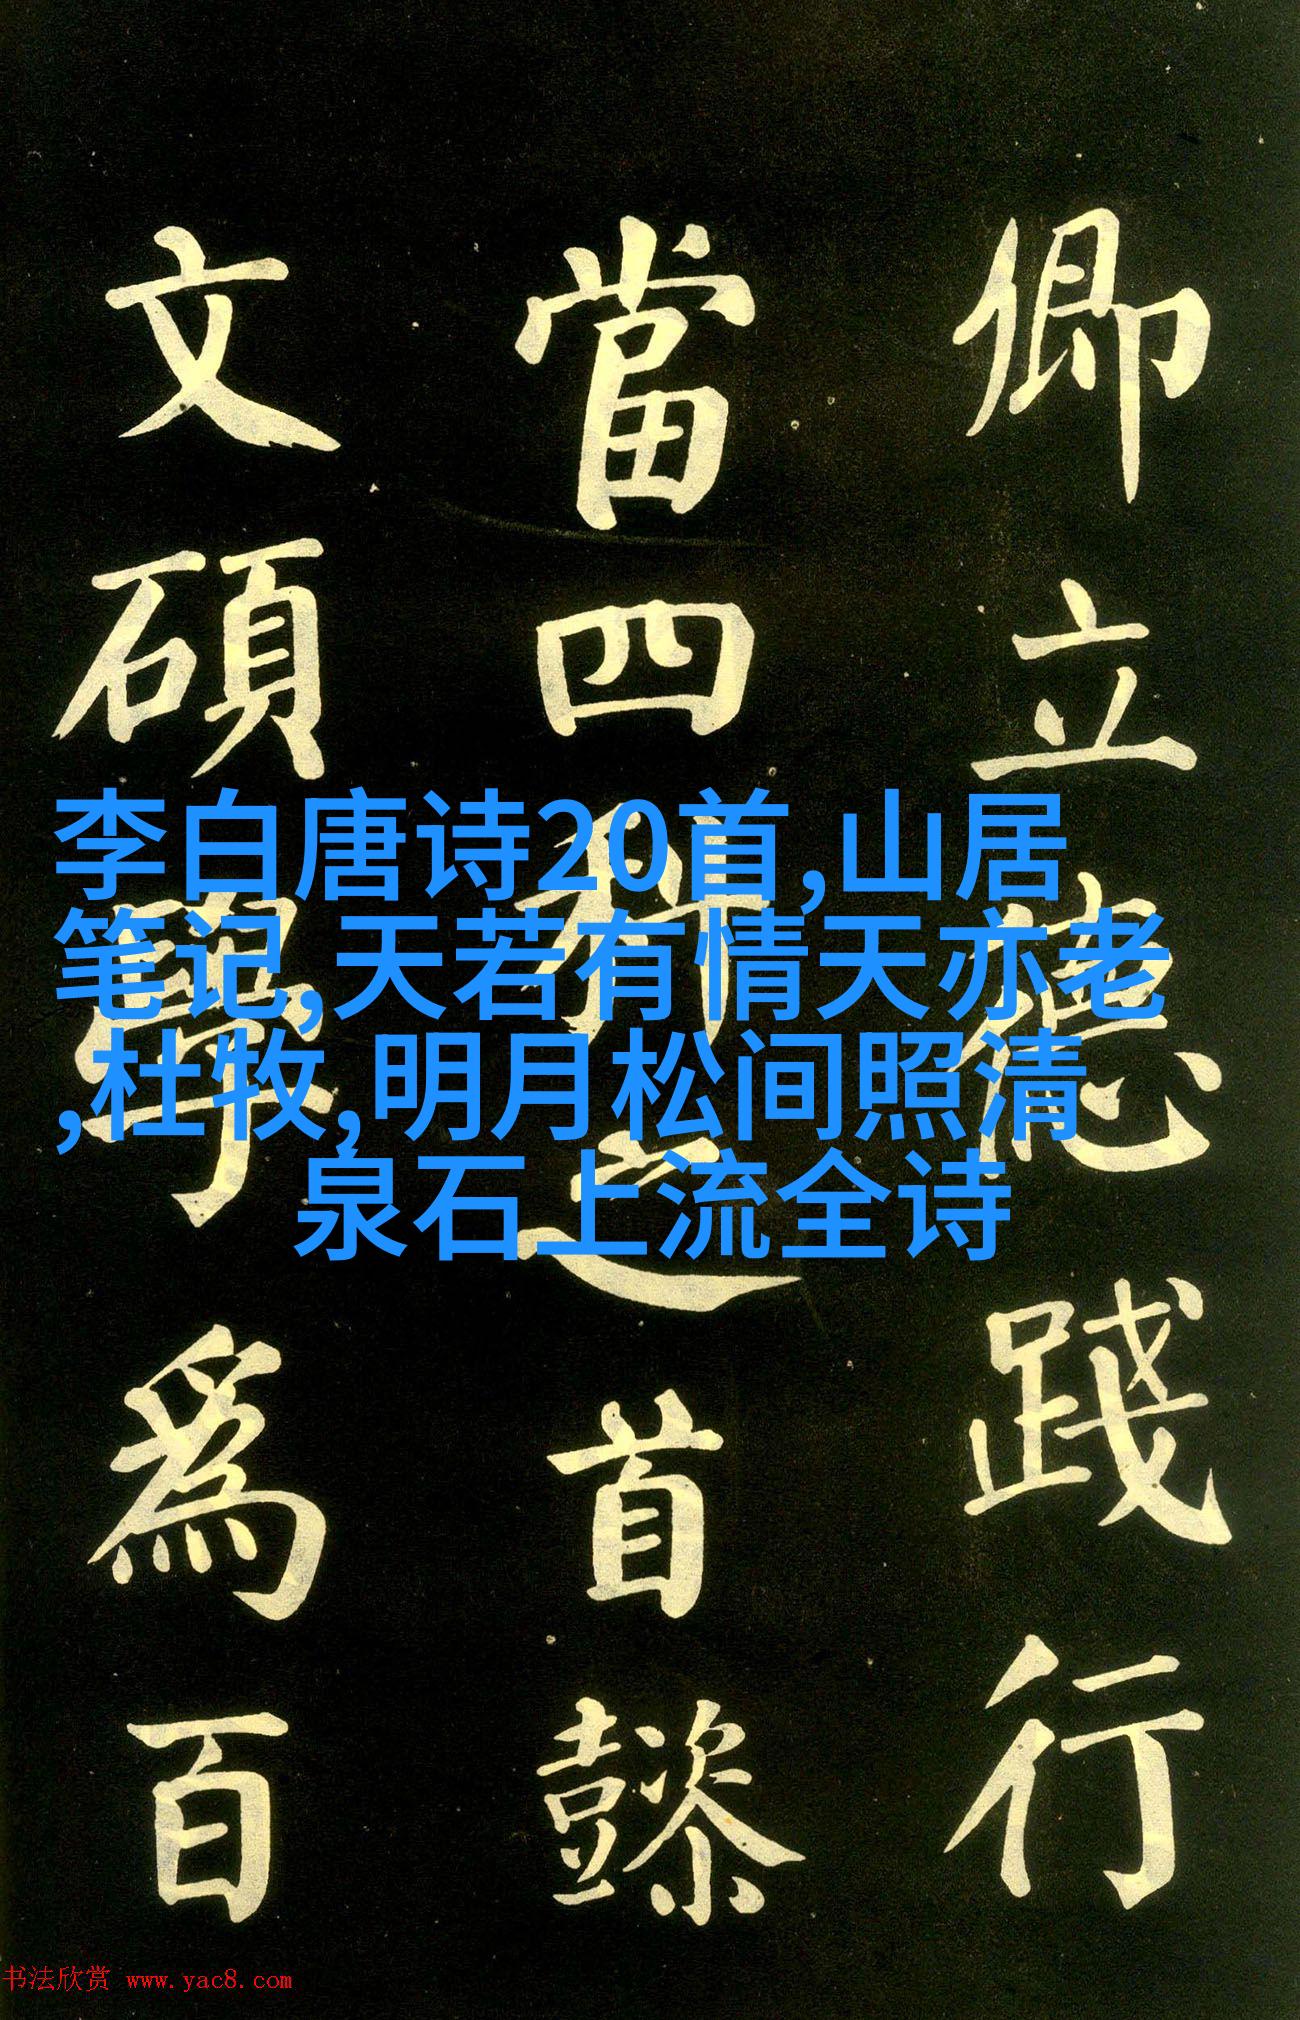 卿立德踐行
當四科之首懿
文碩學為百
李白唐诗20首,山居
笔记,天若有情天亦老
,杜牧,明月松间照清
泉石上流全诗
书法欣赏 www.yac8.com